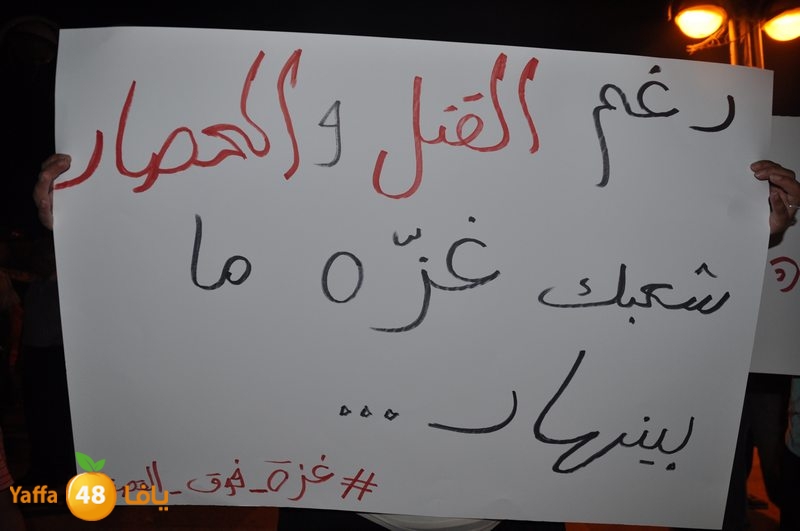 رغم القتل و الحصار
شعبك غزّه ما
بينهار ...
#غزة_فوق_
Yaffa 48 يافا
ة